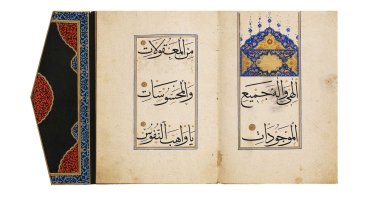 الهي واله جميع
الموجودات
من المعقولات
والمحسوسات
يا واهب النفوس